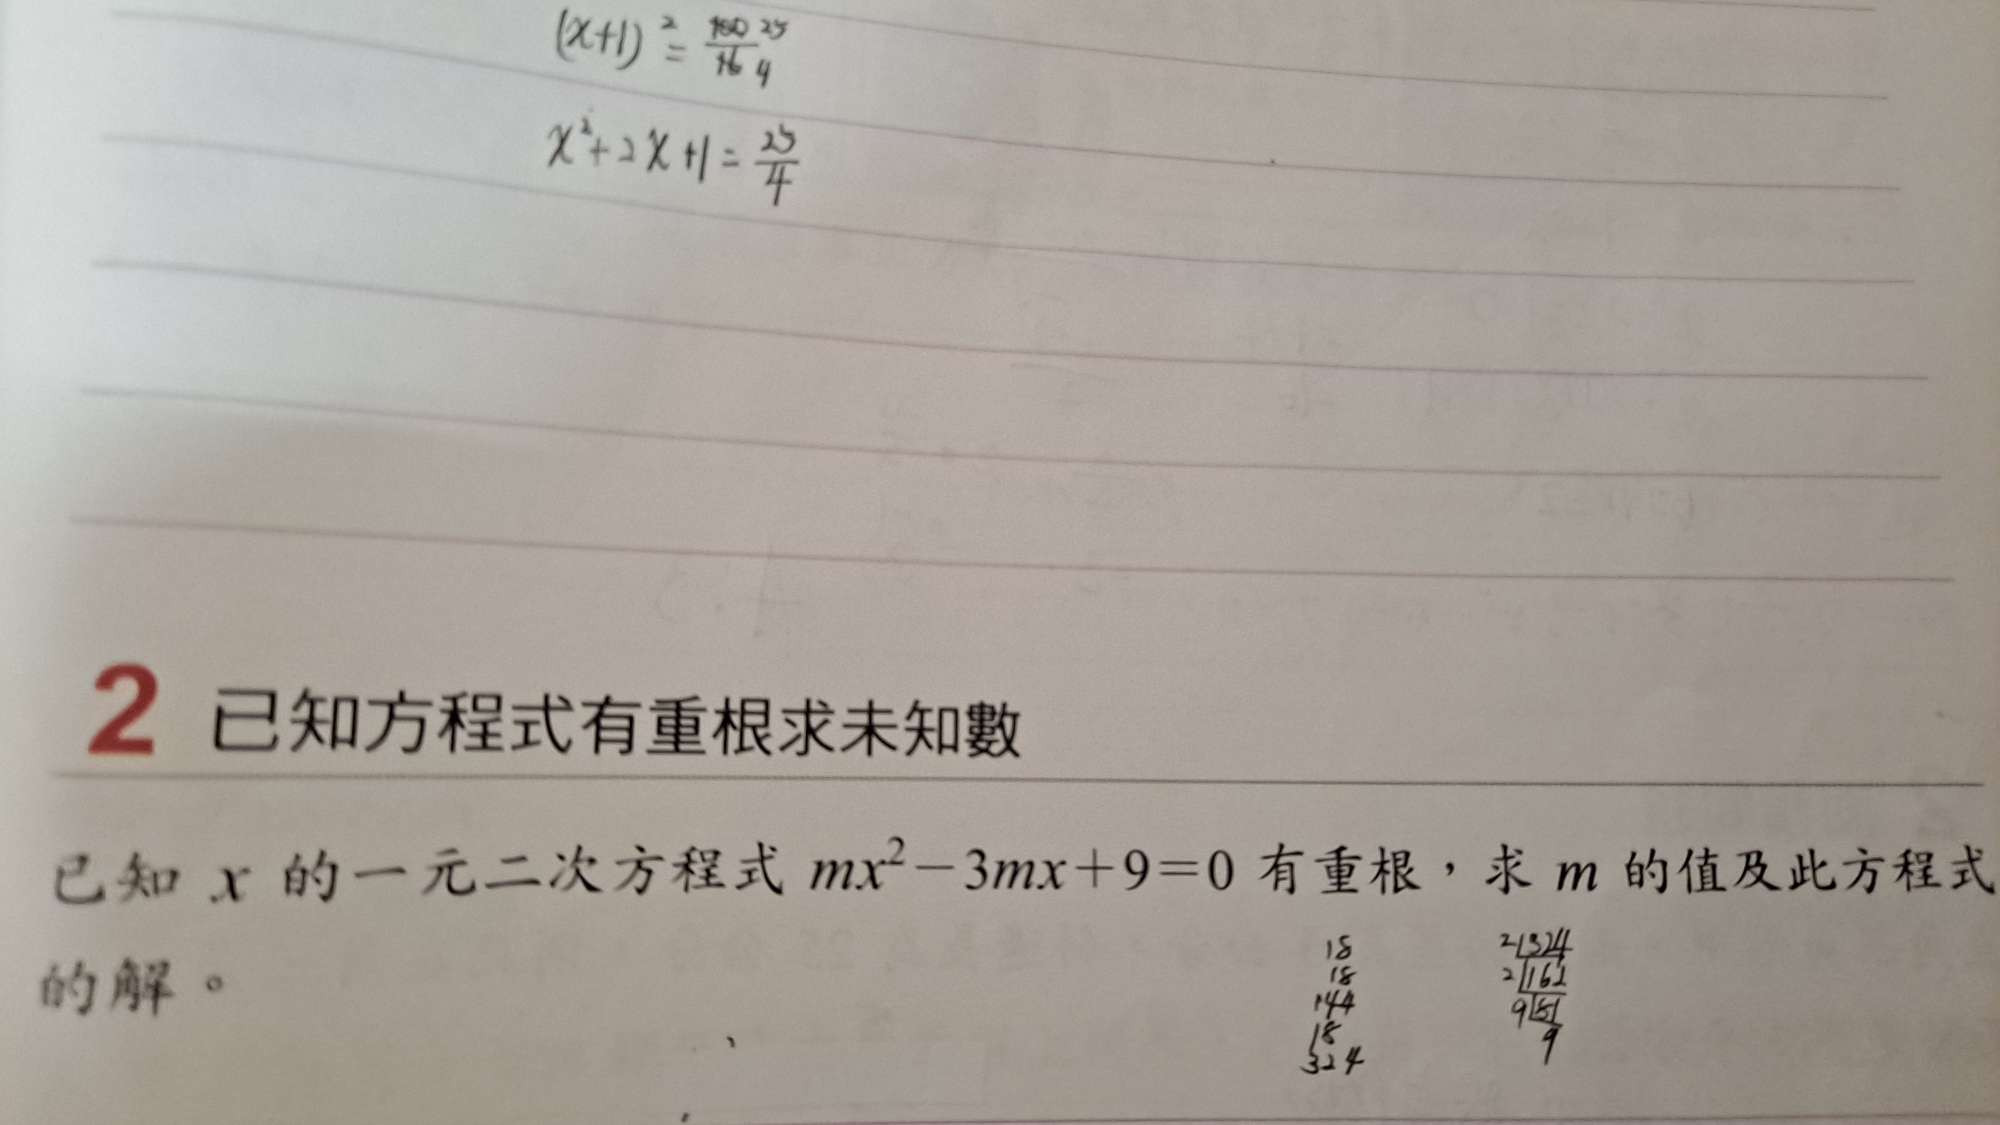 (x+1)² = 100/16 25/4
x²+2x+1 = 25/4
2 已知方程式有重根求未知數
已知 x 的一元二次方程式 mx²−3mx+9=0 有重根，求 m 的值及此方程式
的解。
18
18
144
18
324
2|324
2|162
9|81
9